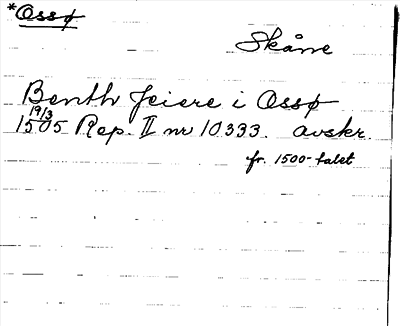 *Ossø
Skåne
Benth Jeiere i Ossø
19/3
1505 Rep. II nr 10333. avskr.
fr. 1500-talet